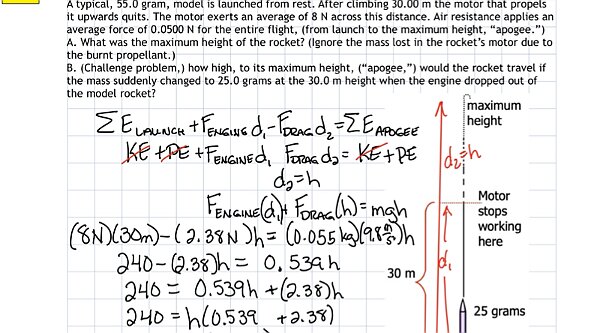 A typical, 55.0 gram, model is launched from rest. After climbing 30.00 m the motor that propels
it upwards quits. The motor exerts an average of 8 N across this distance. Air resistance applies an
average force of 0.0500 N for the entire flight, (from launch to the maximum height, “apogee.”)
A. What was the maximum height of the rocket? (Ignore the mass lost in the rocket's motor due to
the burnt propellant.)
B. (Challenge problem,) how high, to its maximum height, (“apogee,”) would the rocket travel if
the mass suddenly changed to 25.0 grams at the 30.0 m height when the engine dropped out of
the model rocket?
ΣE LAUNCH + FENGINE d₁ - FDRAG d₂ = ΣE APOGEE
KE + PE + FENGINE d₁ FDRAG d₂ = KE + PE
d₂=h
FENGINE(d₁)+ FDRAG(h) = mgh
(8N)(30m)-(2.38N)h = (0.055kg)(9.8 m/s²)h
240-(2.38)h = 0.539h
240 = 0.539h +(2.38)h
240 = h(0.539 +2.38)
maximum
height
d₂=h
Motor
stops
working
here
d₁
30 m
25 grams